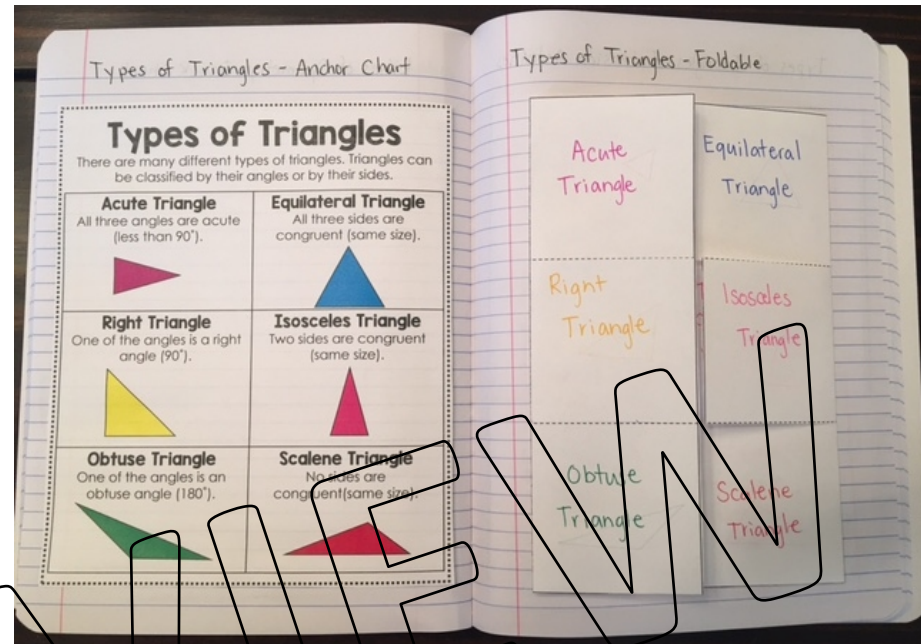 Types of Triangles - Anchor Chart
Types of Triangles
There are many different types of triangles. Triangles can
be classified by their angles or by their sides.
Acute Triangle
All three angles are acute
(less than 90°).
Equilateral Triangle
All three sides are
congruent (same size).
Right Triangle
One of the angles is a right
angle (90°).
Isosceles Triangle
Two sides are congruent
(same size).
Obtuse Triangle
One of the angles is an
obtuse angle (180°).
Scalene Triangle
No sides are
congruent(same size).
Types of Triangles - Foldable
Acute
Triangle
Equilateral
Triangle
Right
Triangle
Isosceles
Triangle
Obtuse
Triangle
Scalene
Triangle